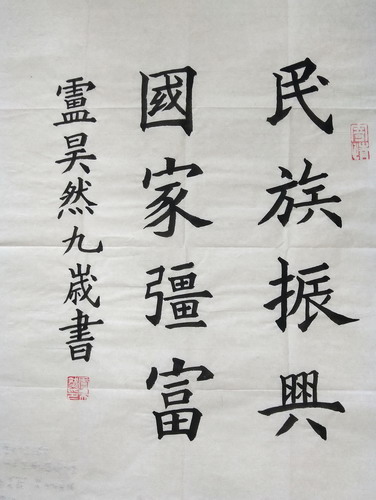 民族振興
國家彊富
盧昊然九歲書